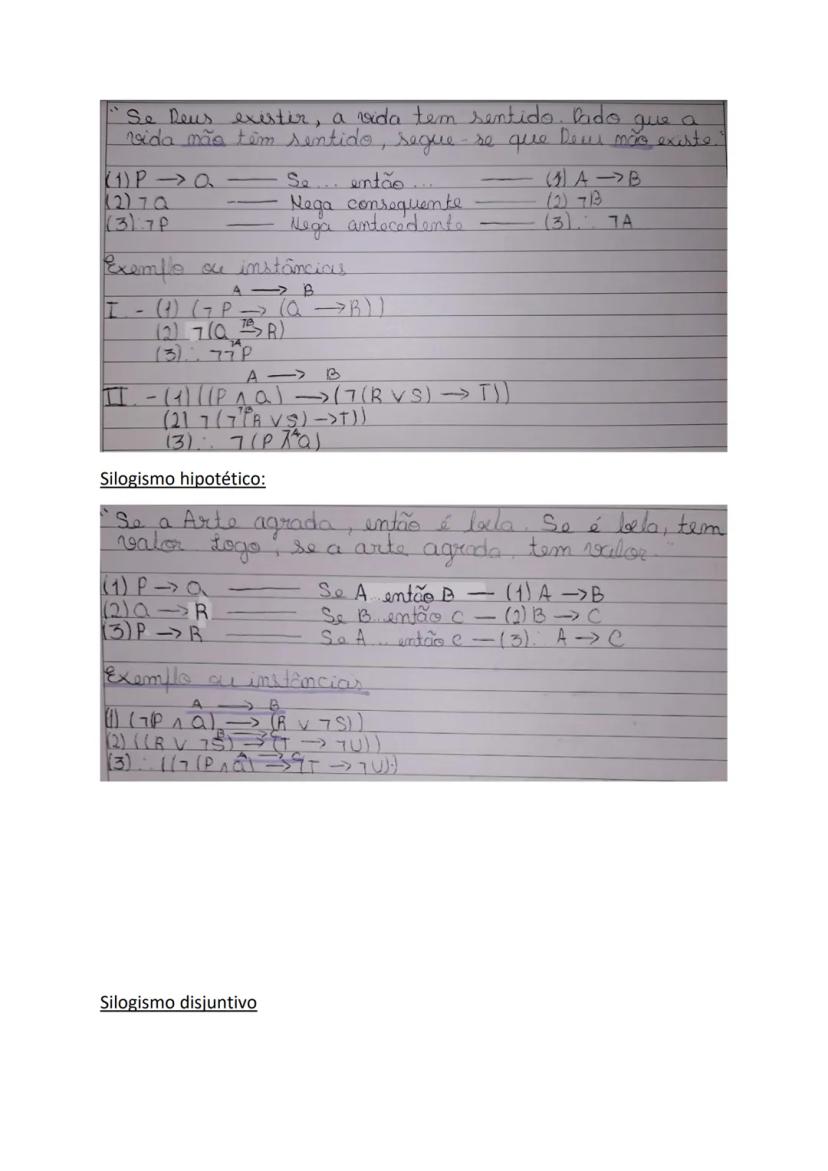 "Se Deus existir, a vida tem sentido. Dado que a
vida não têm sentido, segue-se que Deus não existe."
(1) P → Q —— Se... então... —— (1) A → B
(2) ¬Q —— Nega consequente —— (2) ¬B
(3) ∴ ¬P —— Nega antecedente —— (3) ∴ ¬A
Exemplo ou instâncias
A → B
I - (1) (¬P → (Q → R))
¬B
(2) ¬(Q → R)
¬A
(3) ∴ ¬¬P
A → B
II - (1) ((P ∧ Q) → (¬(R ∨ S) → T))
¬B
(2) ¬(¬(R ∨ S) → T))
¬A
(3) ∴ ¬(P ∧ Q)
Silogismo hipotético:
"Se a Arte agrada, então é bela. Se é bela, tem
valor. Logo, se a arte agrada, tem valor."
(1) P → Q —— Se A... então B — (1) A → B
(2) Q → R —— Se B... então C — (2) B → C
(3) P → R —— Se A... então C — (3) ∴ A → C
Exemplo ou instâncias
A → B
(1) (¬(P ∧ Q) → (R ∨ ¬S))
B → C
(2) ((R ∨ ¬S) → (T → ¬U))
A → C
(3) ∴ ((¬(P ∧ Q) → (T → ¬U))
Silogismo disjuntivo